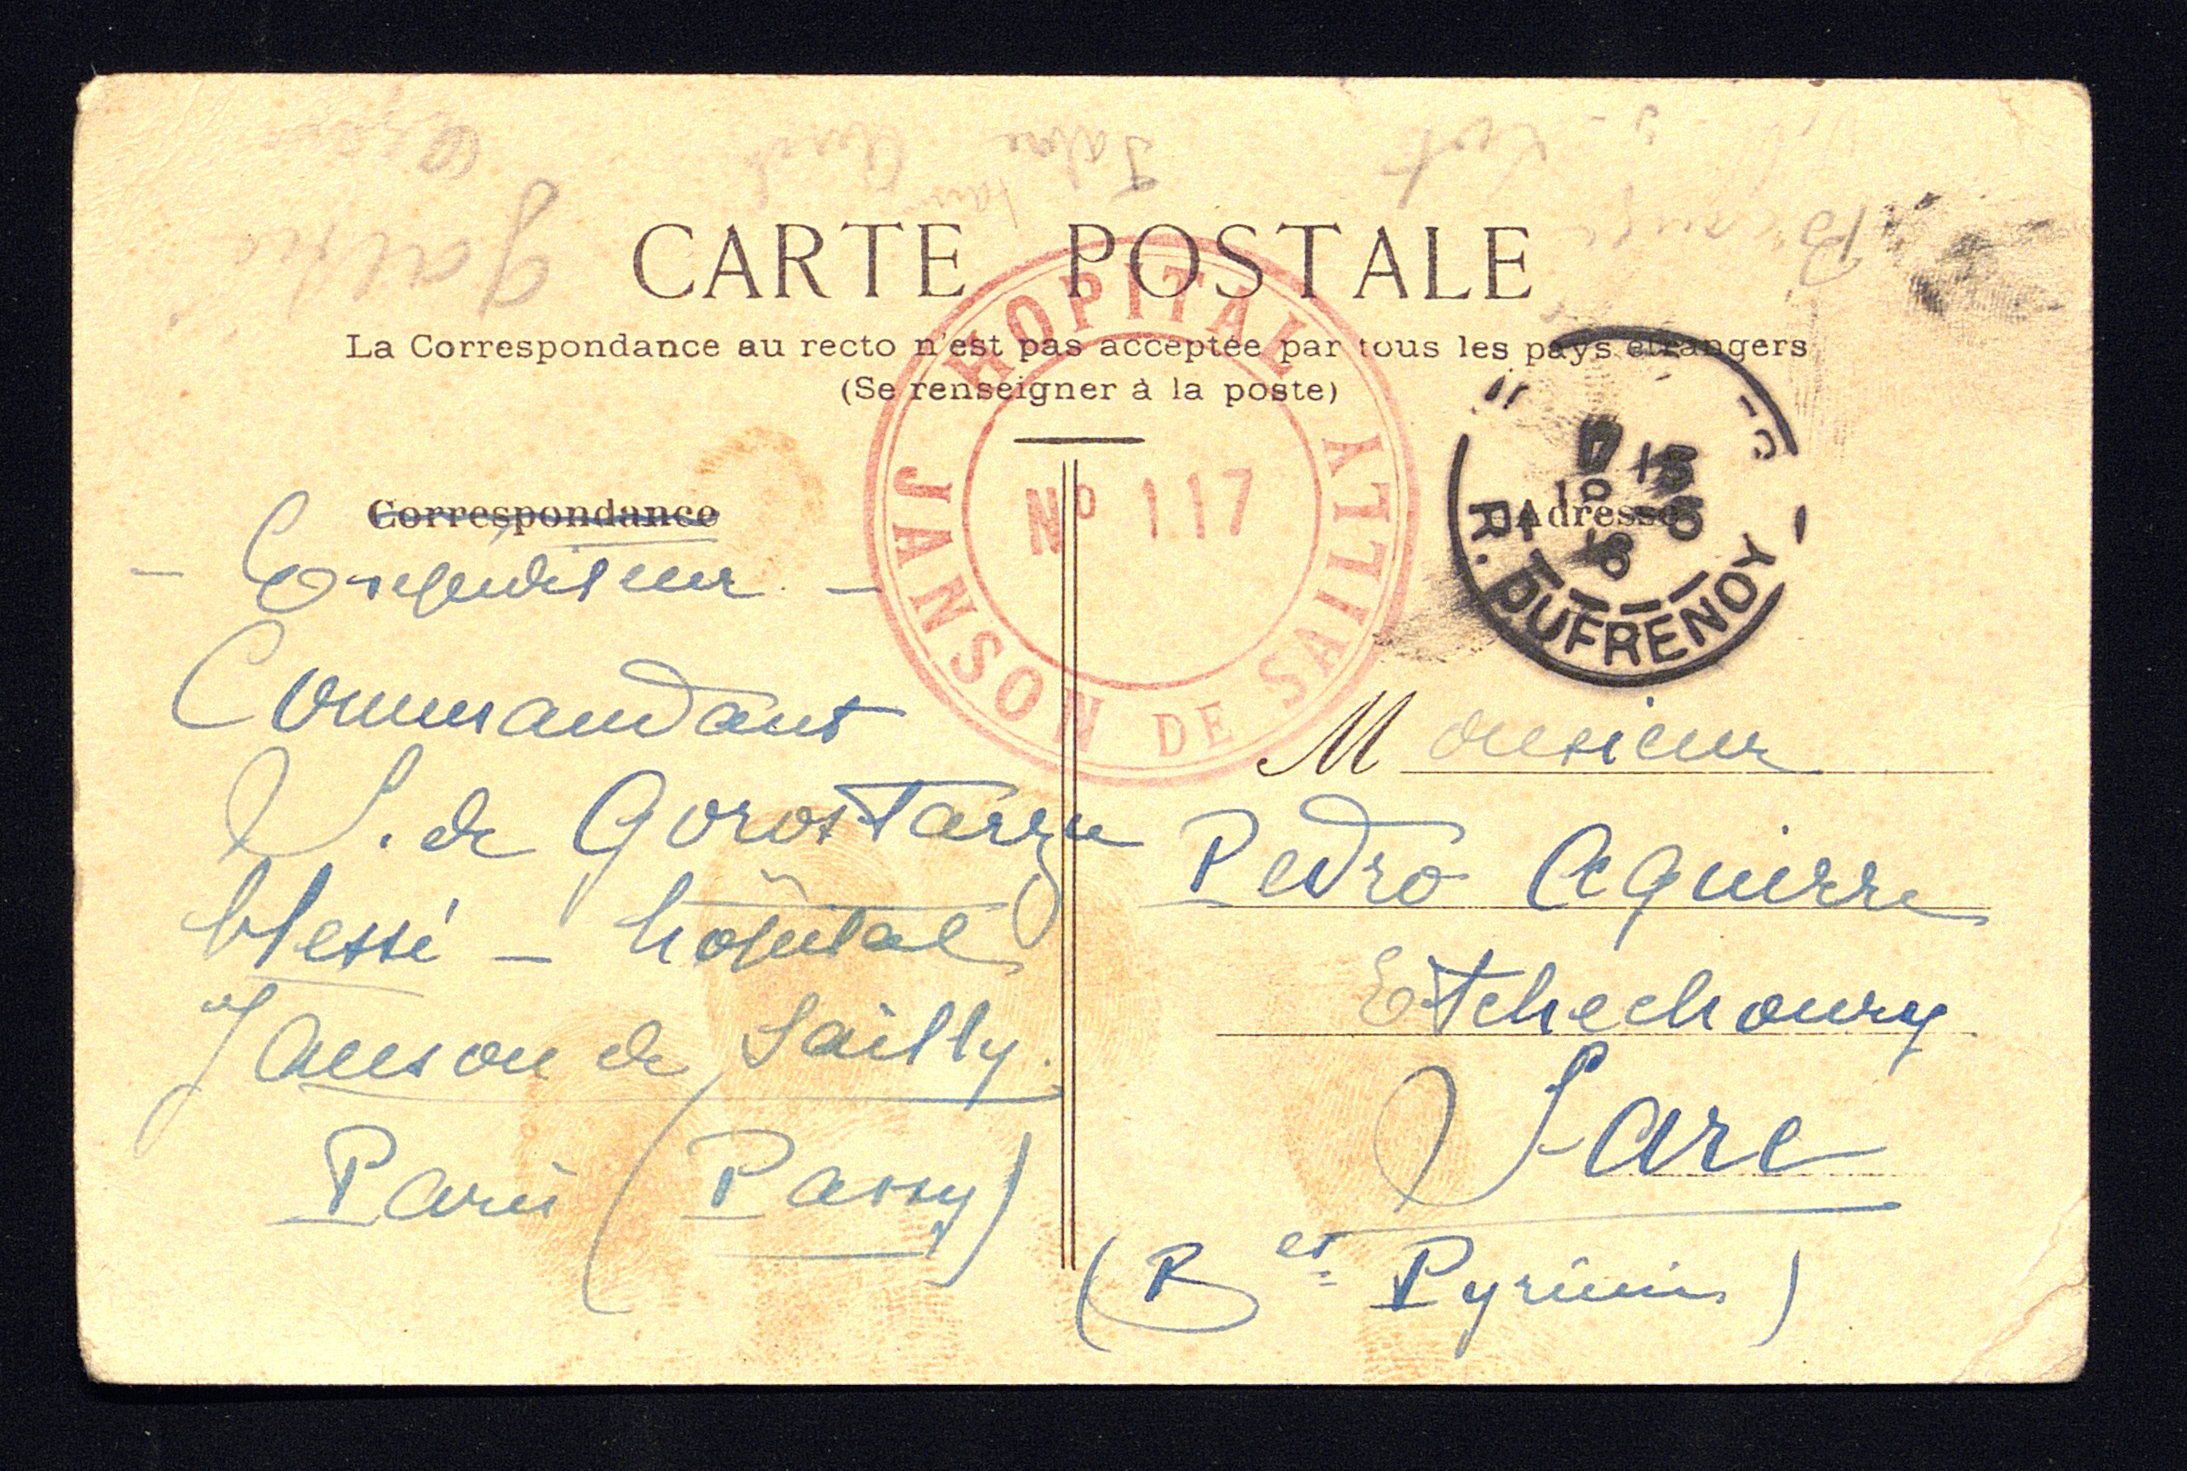 CARTE POSTALE
La Correspondance au recto n'est pas acceptée par tous les pays étrangers
(Se renseigner à la poste)
HOPITAL JANSON DE SAILLY
No 117
R. DUFRENOY
Correspondance
Adresse
- Expéditeur -
Commandant
S. de Gorostarzu
blessé - hôpital
Janson de Sailly.
Paris (Passy)
Monsieur
Pedro Aguirre
Etchechoury
Sare
(Bses Pyrénées)